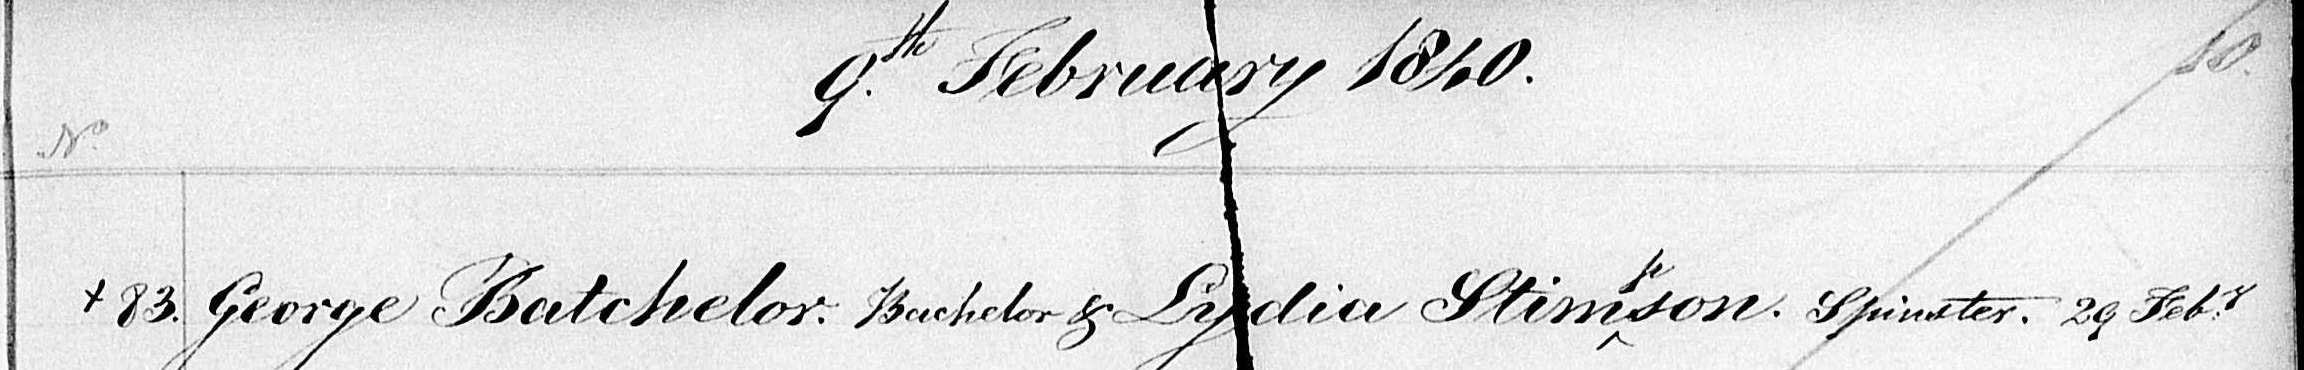 9.th February 1840.
40.
No
+ 83. George Batchelor. Bachelor & Lydia Stimpson. Spinster. 29 Feb.y